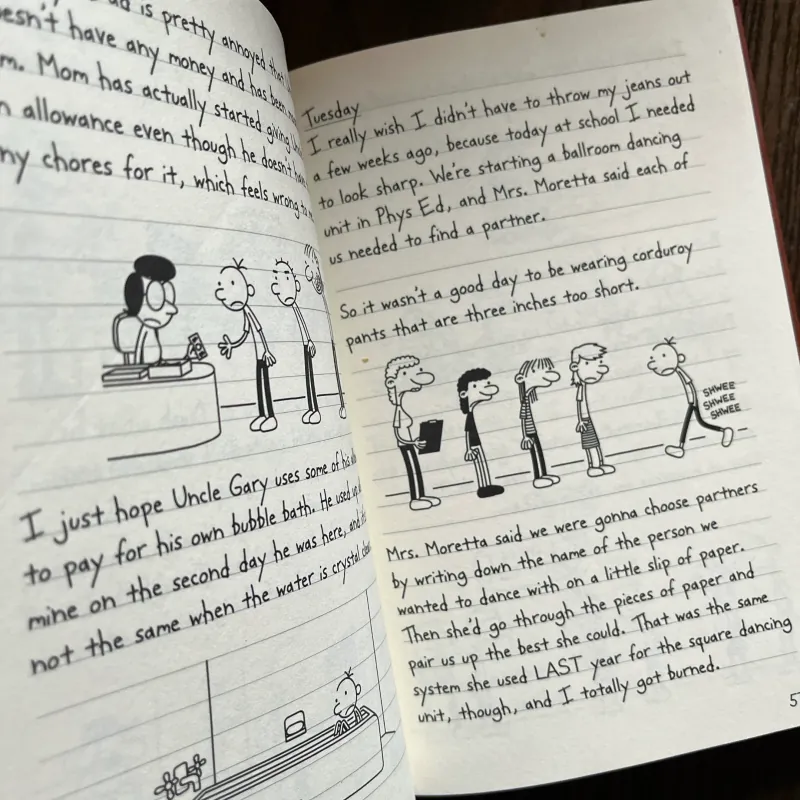 is pretty annoyed that
doesn't have any money and has been
Mom has actually started giving
allowance even though he doesn't have
any chores for it, which feels wrong to
I just hope Uncle Gary uses some of his
to pay for his own bubble bath. He used up
mine on the second day he was here, and
not the same when the water is crystal clear
Tuesday
I really wish I didn't have to throw my jeans out
a few weeks ago, because today at school I needed
to look sharp. We're starting a ballroom dancing
unit in Phys Ed, and Mrs. Moretta said each of
us needed to find a partner.
So it wasn't a good day to be wearing corduroy
pants that are three inches too short.
SHWEE
SHWEE
SHWEE
Mrs. Moretta said we were gonna choose partners
by writing down the name of the person we
wanted to dance with on a little slip of paper.
Then she'd go through the pieces of paper and
pair us up the best she could. That was the same
system she used LAST year for the square dancing
unit, though, and I totally got burned.